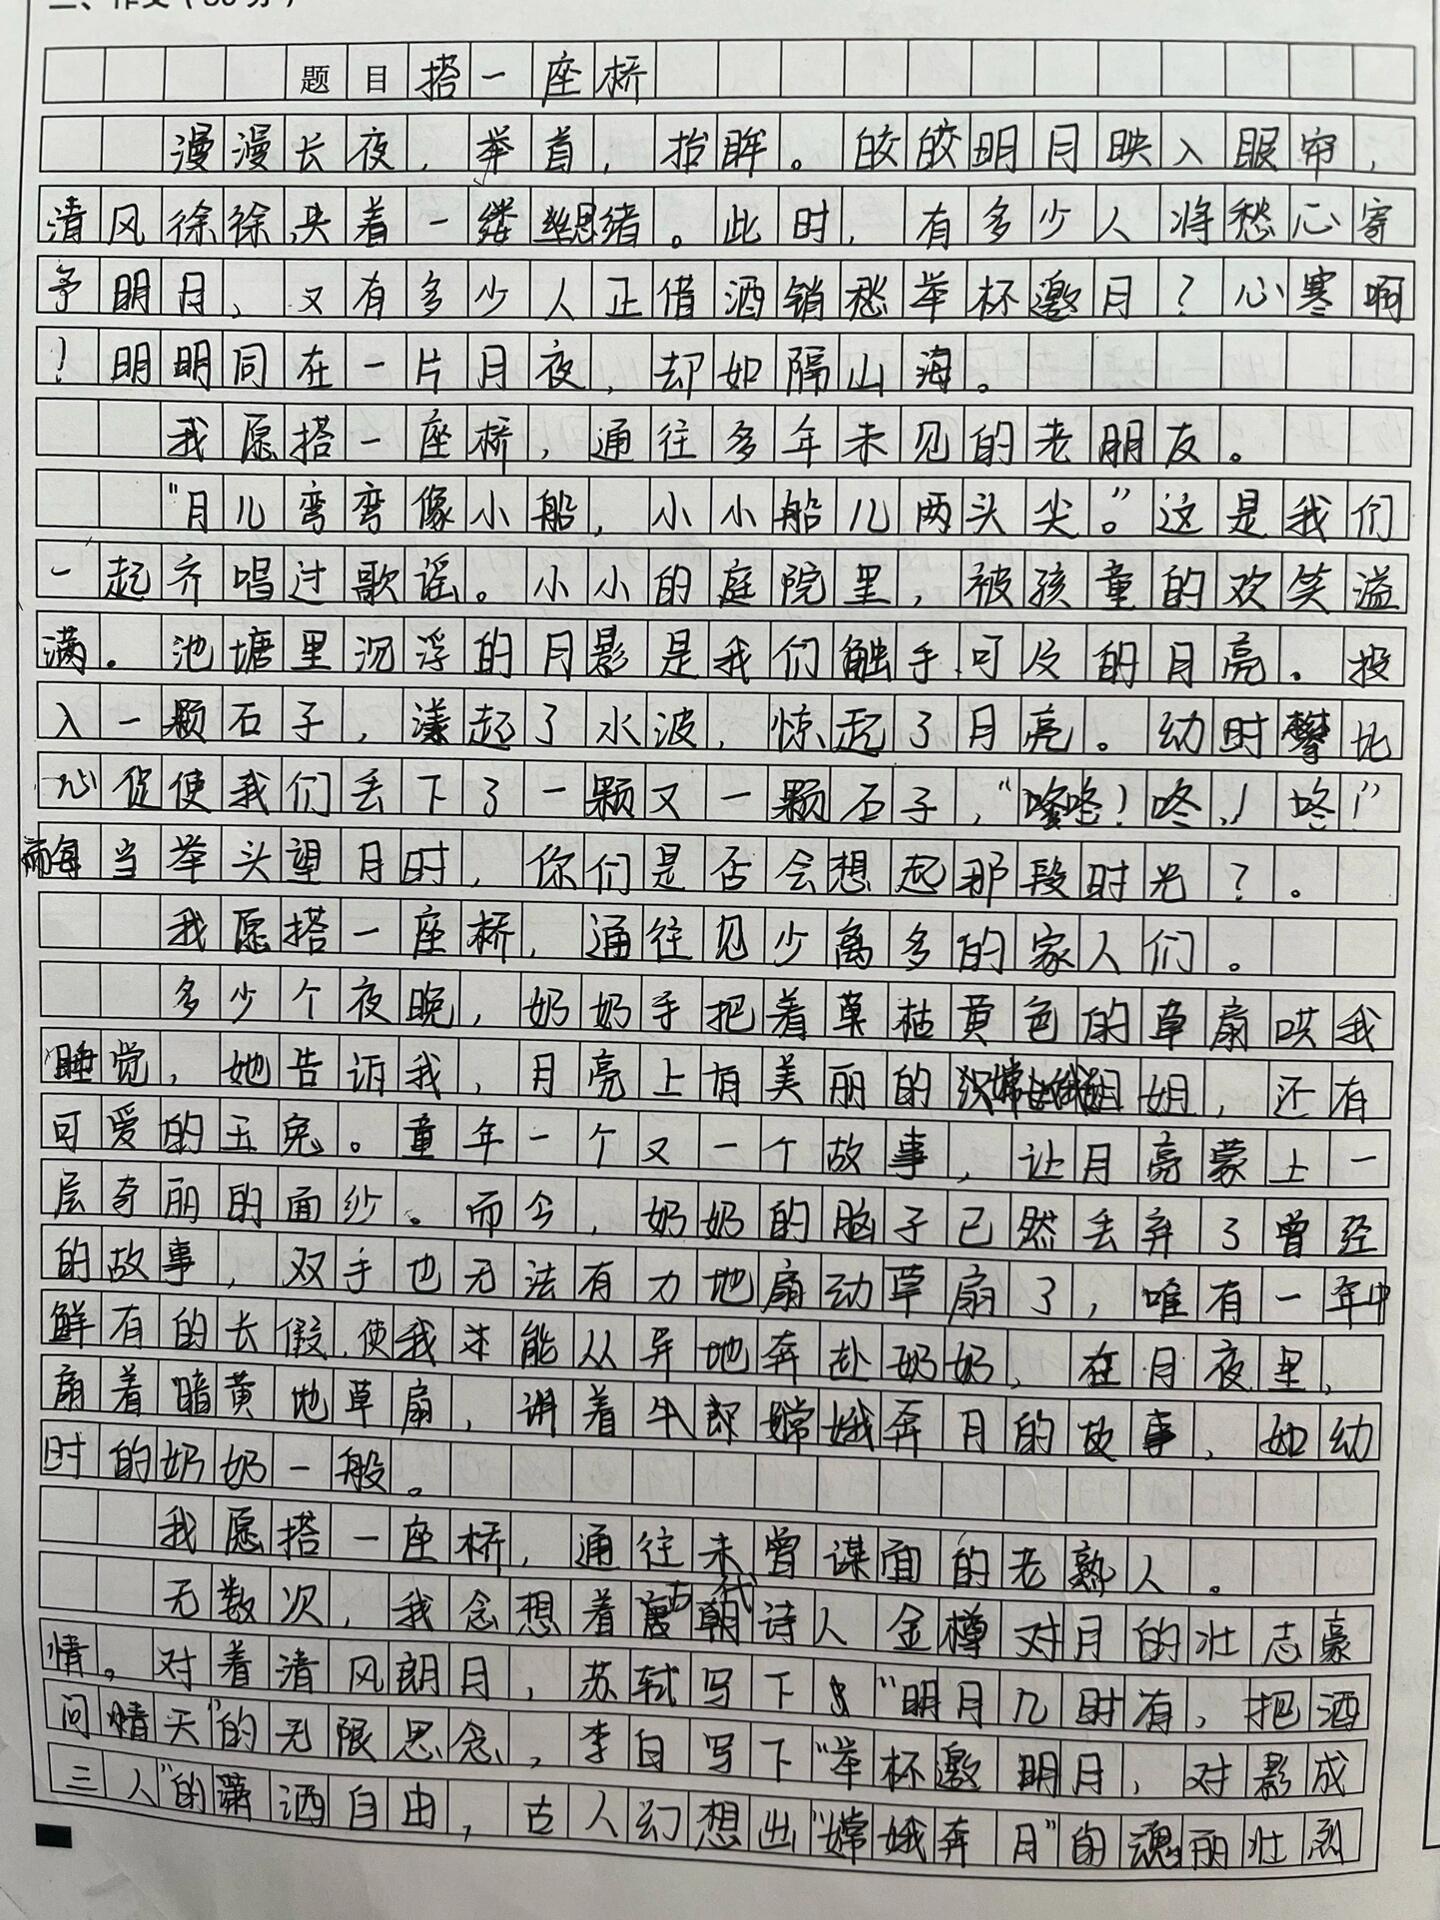 二、作文（50分）
题目 搭一座桥
漫漫长夜，举首，抬眸。皎皎明月映入眼帘，
清风徐徐，夹着一缕思绪。此时，有多少人将愁心寄
予明月，又有多少人正借酒销愁举杯邀月？心寒啊
！明明同在一片月夜，却如隔山海。
我愿搭一座桥，通往多年未见的老朋友。
“月儿弯弯像小船，小小船儿两头尖。”这是我们
一起齐唱过歌谣。小小的庭院里，被孩童的欢笑溢
满。池塘里沉浮的月影是我们触手可及的月亮。投
入一颗石子，漾起了水波，惊起了月亮。幼时攀比
心促使我们丢下了一颗又一颗石子，“咚！咚！咚！”
而每当举头望月时，你们是否会想起那段时光？。
我愿搭一座桥，通往见少离多的家人们。
多少个夜晚，奶奶手把着草枯黄色的草扇哄我
睡觉，她告诉我，月亮上有美丽的嫦娥姐姐，还有
可爱的玉兔。童年一个又一个故事，让月亮蒙上一
层奇丽的面纱。而今，奶奶的脑子已然丢弃了曾经
的故事，双手也无法有力地扇动草扇了，唯有一年中
鲜有的长假，使我才能从异地奔赴奶奶，在月夜里，
扇着暗黄地草扇，讲着牛郎嫦娥奔月的故事，如幼
时的奶奶一般。
我愿搭一座桥，通往未曾谋面的老熟人。
无数次，我念想着古代诗人金樽对月的壮志豪
情。对着清风朗月，苏轼写下出“明月几时有，把酒
问情天”的无限思念，李白写下“举杯邀明月，对影成
三人”的潇洒自由，古人幻想出“嫦娥奔月”的魂丽壮烈